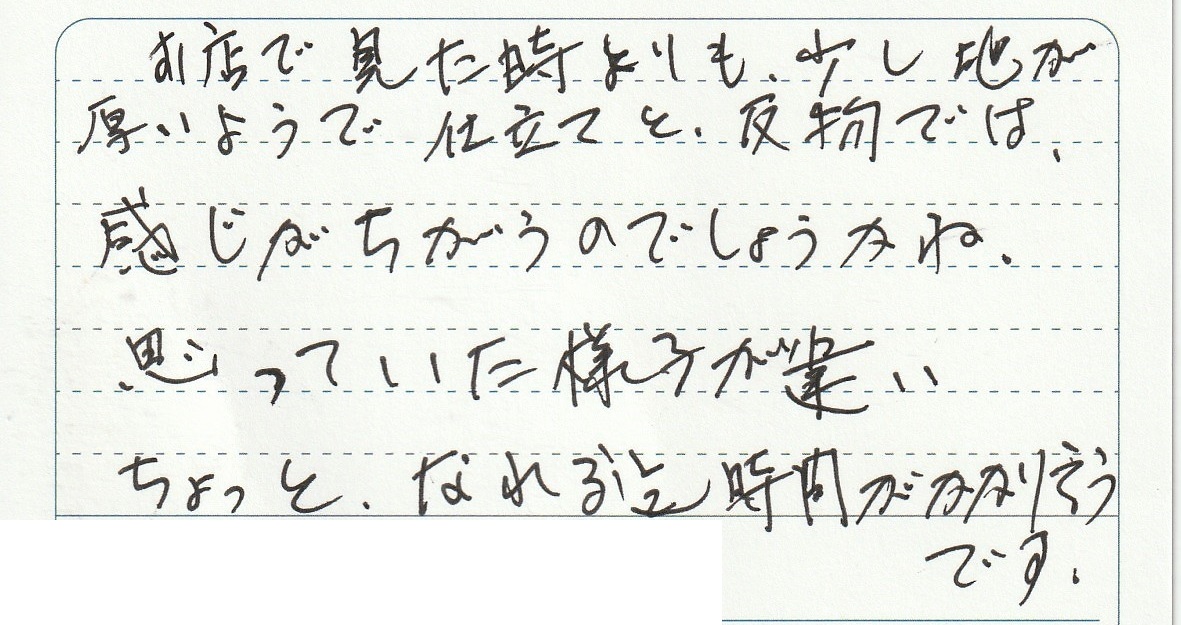 お店で見た時よりも、少し地が
厚いようで仕立てと、反物では、
感じがちがうのでしょうかね、
思っていた様子が違い
ちょっと、なれる迄時間がかかりそう
です、